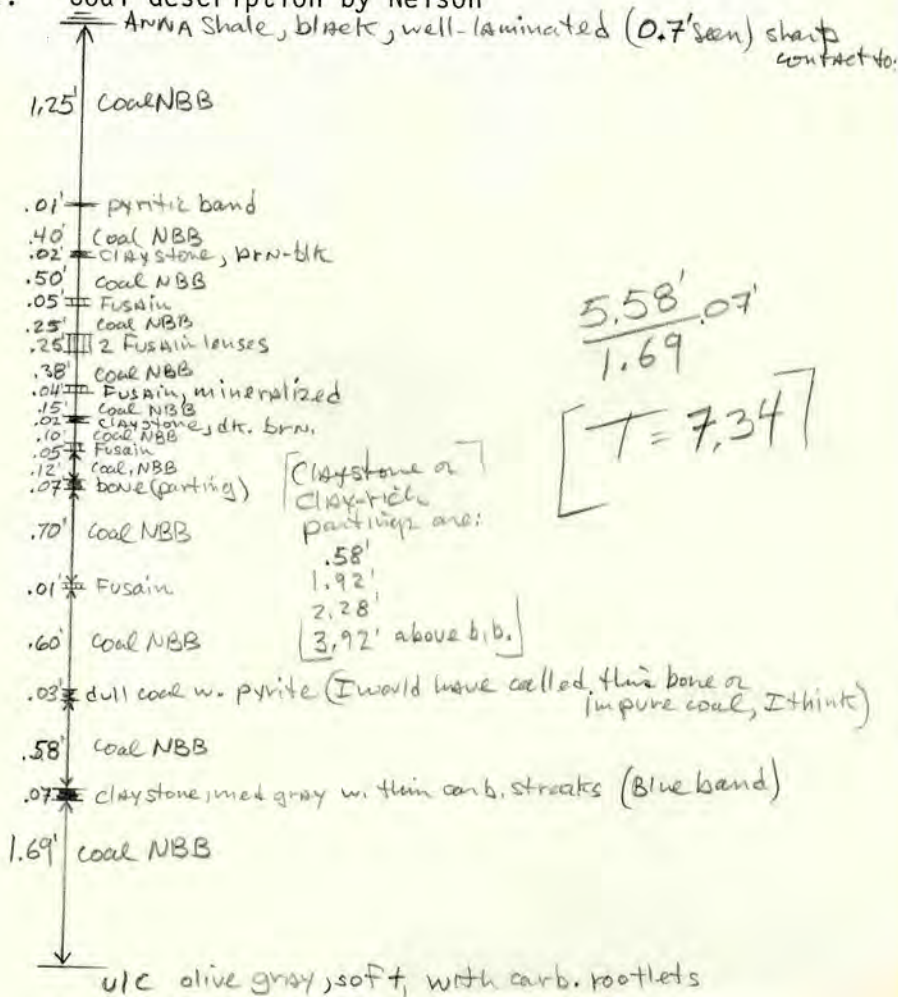 . Coal description by Nelson
ANNA Shale, black, well-laminated (0.7' seen) sharp
contact to:
1.25' Coal NBB
.01' pyritic band
.40' Coal NBB
.02' claystone, brn-blk
.50' Coal NBB
.05' Fusain
.25' Coal NBB
.25' 2 Fusain lenses
.38' Coal NBB
.04' Fusain, mineralized
.15' Coal NBB
.02' claystone, dk. brn.
.10' Coal NBB
.05' Fusain
.12' Coal, NBB
.07' bone (parting)
.70' Coal NBB
.01' Fusain
.60' Coal NBB
.03' dull coal w. pyrite (I would have called this bone or
impure coal, I think)
.58' Coal NBB
.07' claystone, med gray w. thin carb. streaks (Blue band)
1.69' Coal NBB
u/c olive gray, soft, with carb. rootlets
[Claystone or
clay-rich
partings are:
.58'
1.92'
2.28'
3.92' above b.b.]
5.58' .07'
1.69
[T = 7.34]